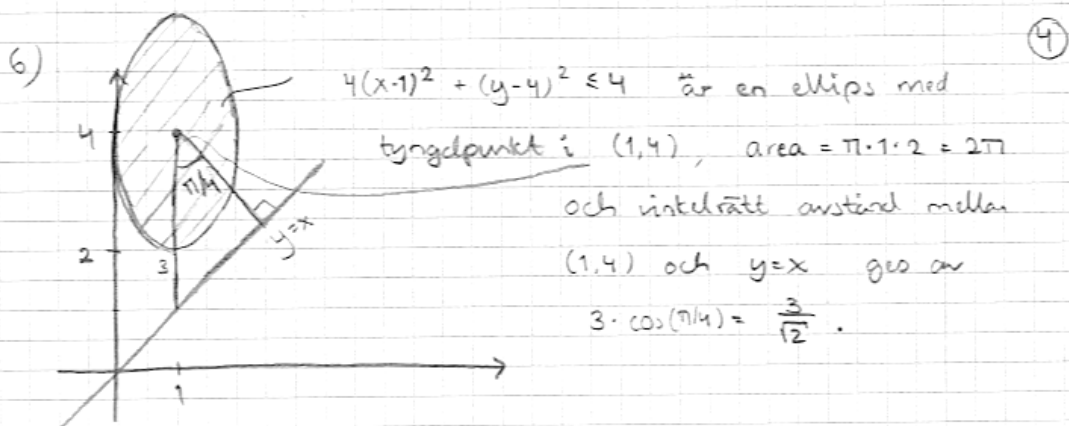 6)
4
4(x-1)² + (y-4)² ≤ 4 är en ellips med
4
tyngdpunkt i (1,4), area = π·1·2 = 2π
π/4
och vinkelrätt avstånd mellan
y=x
2
3
(1,4) och y=x ges av
3·cos(π/4) = 3/√2.
1